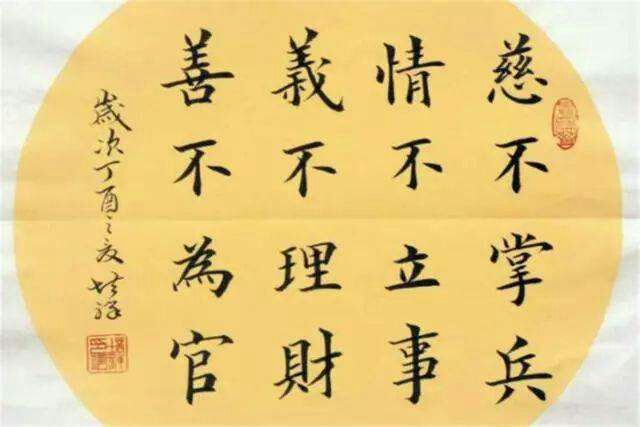 慈不掌兵
情不立事
義不理財
善不為官
歲次丁酉之夏